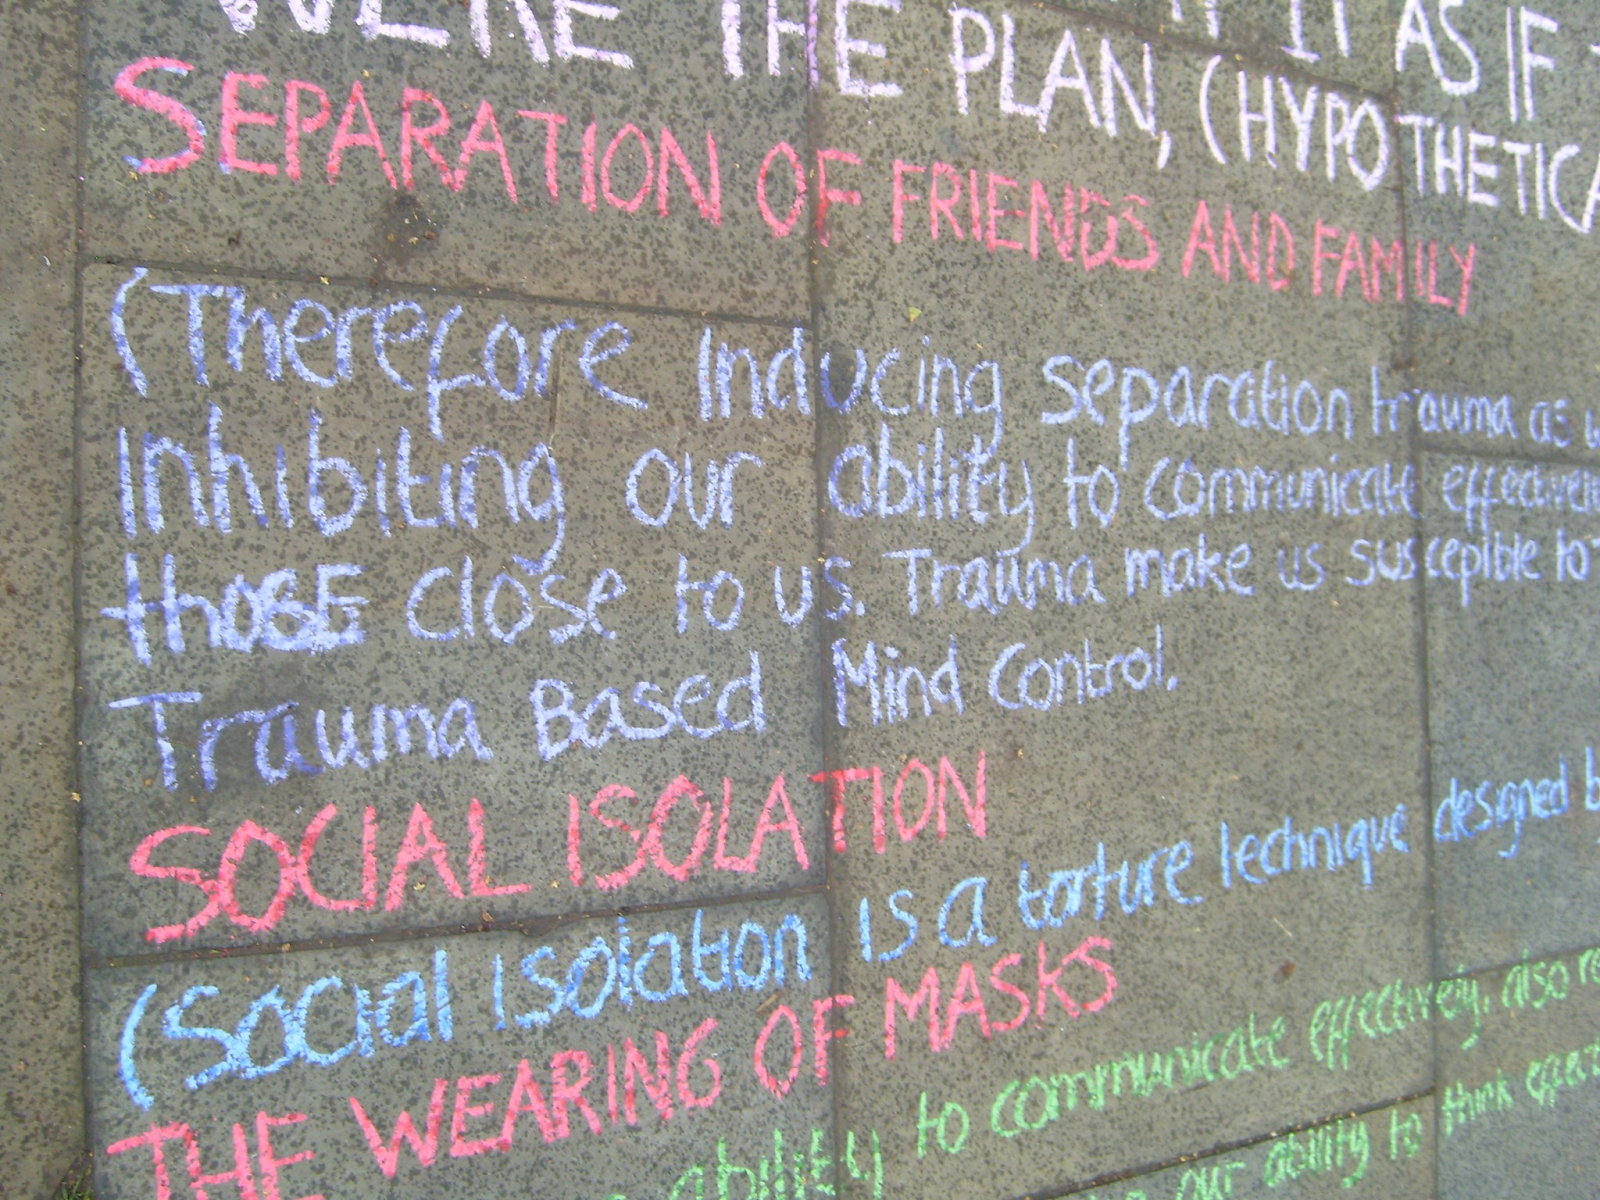 WERE THE PLAN, (HYPOTHETICA
IT AS IF
SEPARATION OF FRIENDS AND FAMILY
(Therefore Inducing separation trauma as
Inhibiting our ability to communicate effectively
thosE close to us. Trauma make us suscepible to
Trauma Based Mind Control.
SOCIAL ISOLATION
(Social isolation is a torture technique designed b
THE WEARING OF MASKS
ability to communicate effectively, also re
our ability to think effect